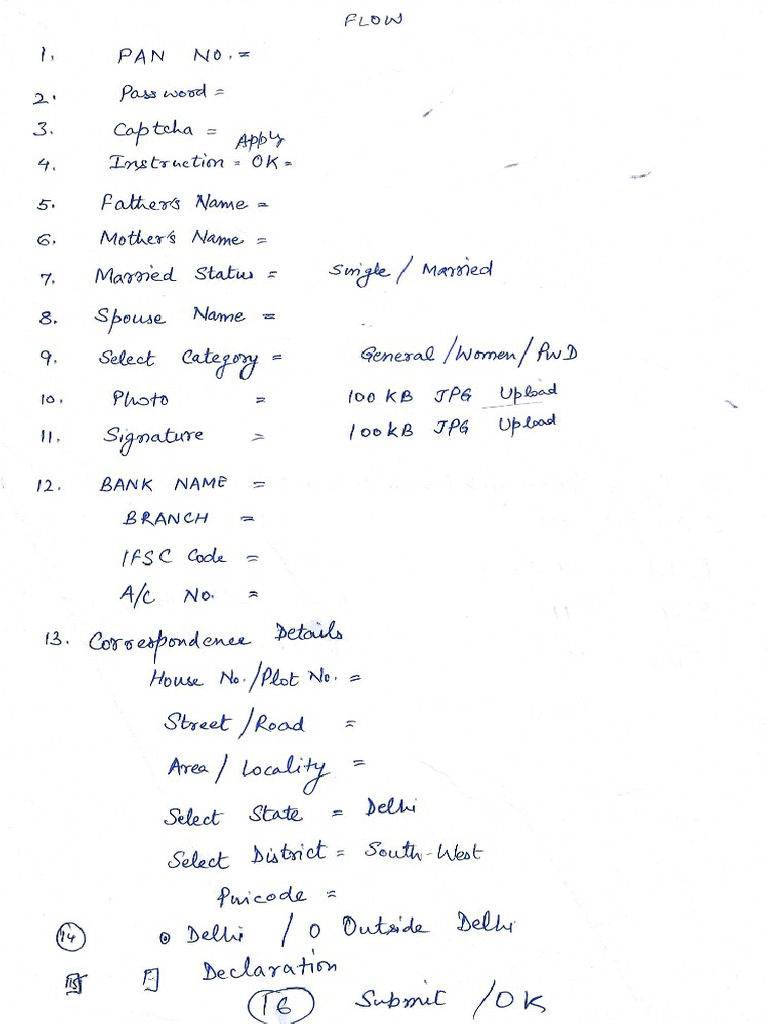 FLOW
1. PAN NO. =
2. Password =
3. Captcha =
Apply
4. Instruction = OK =
5. Father's Name =
6. Mother's Name =
7. Married Status = Single / Married
8. Spouse Name =
9. Select Category = General / Women / PWD
10. Photo = 100 KB JPG Upload
11. Signature = 100 KB JPG Upload
12. BANK NAME =
BRANCH =
IFSC Code =
A/C No. =
13. Correspondence Details
House No. / Plot No. =
Street / Road =
Area / Locality =
Select State = Delhi
Select District = South-West
Pincode =
14 o Delhi / o Outside Delhi
15 Declaration
16 Submit / OK